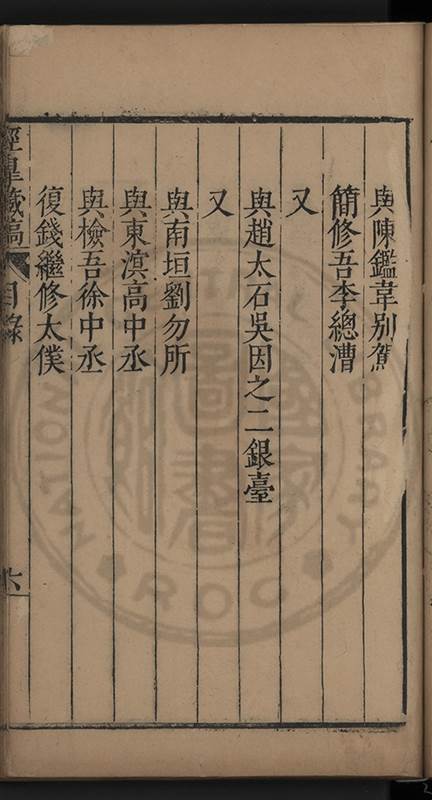 與陳鑑韋別駕
簡修吾李總漕
又
與趙太石吳因之二銀臺
又
與南垣劉勿所
與東溟高中丞
與檢吾徐中丞
復錢繼修太僕
經皐藏稿 目錄 六